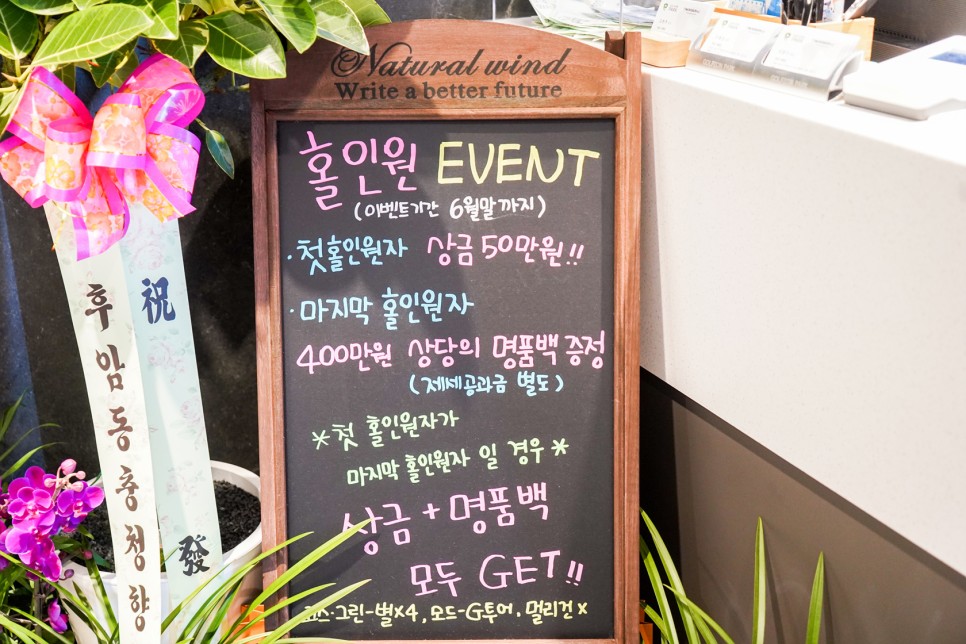 Natural wind
Write a better future
홀인원 EVENT
(이벤트기간 6월말까지)
· 첫홀인원자 상금 50만원!!
· 마지막 홀인원자
400만원 상당의 명품백 증정
(제세공과금 별도)
*첫 홀인원자가
마지막 홀인원자 일 경우*
상금 + 명품백
모두 GET!!
코스-그린-별x4, 모드-G투어, 멀리건x
후암동충청향
祝
發